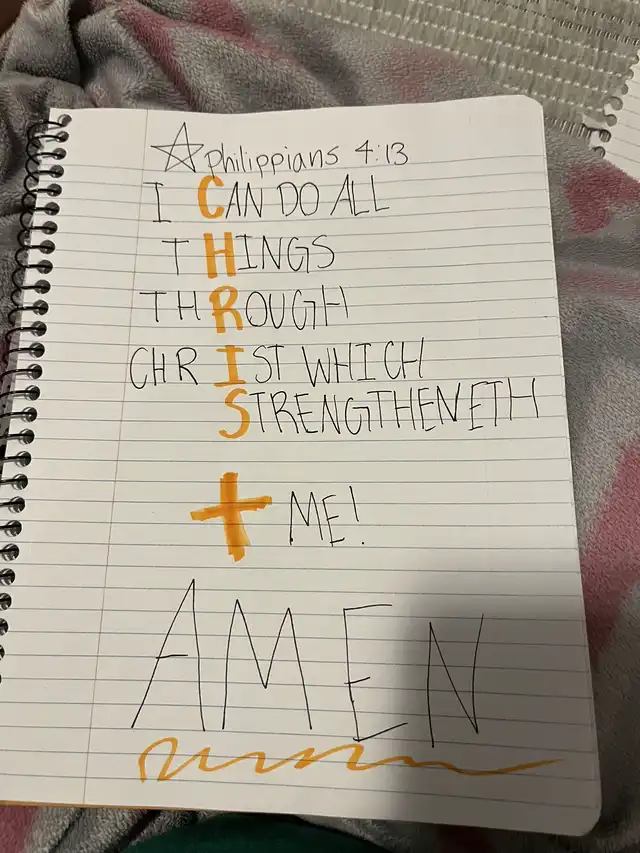 Philippians 4:13
I CAN DO ALL
THINGS
THROUGH
CHRIST WHICH
STRENGTHENETH
ME!
AMEN